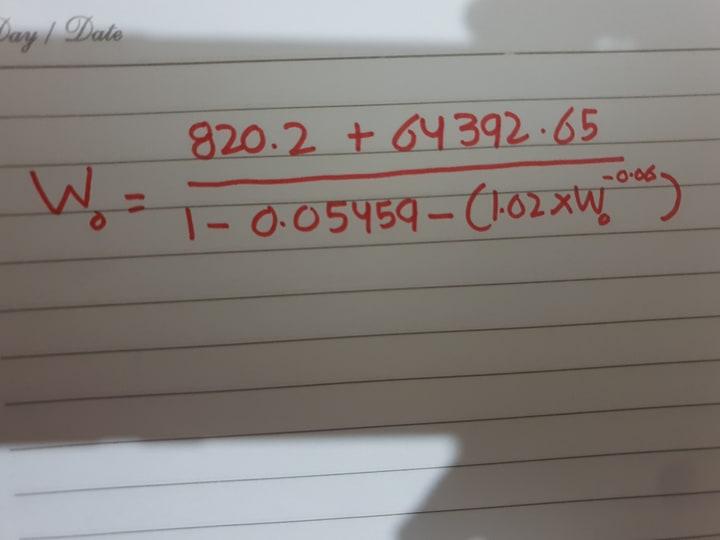 Day / Date
820.2 + 64392.65
W₀ = ―――――――――――――
1 - 0.05459 - (1.02 × W₀^-0.06)